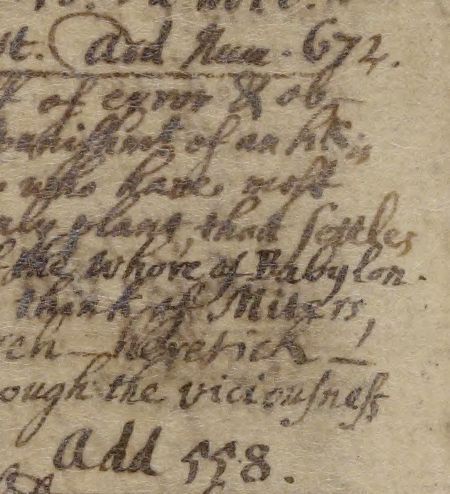 st. Add Num. 672.
of error & ob
punishmt of an htk
who have most
plant, that settles
the Whore of Babylon.
think of Miters,
ch — heretick —
ough the viciousness
Add 558.